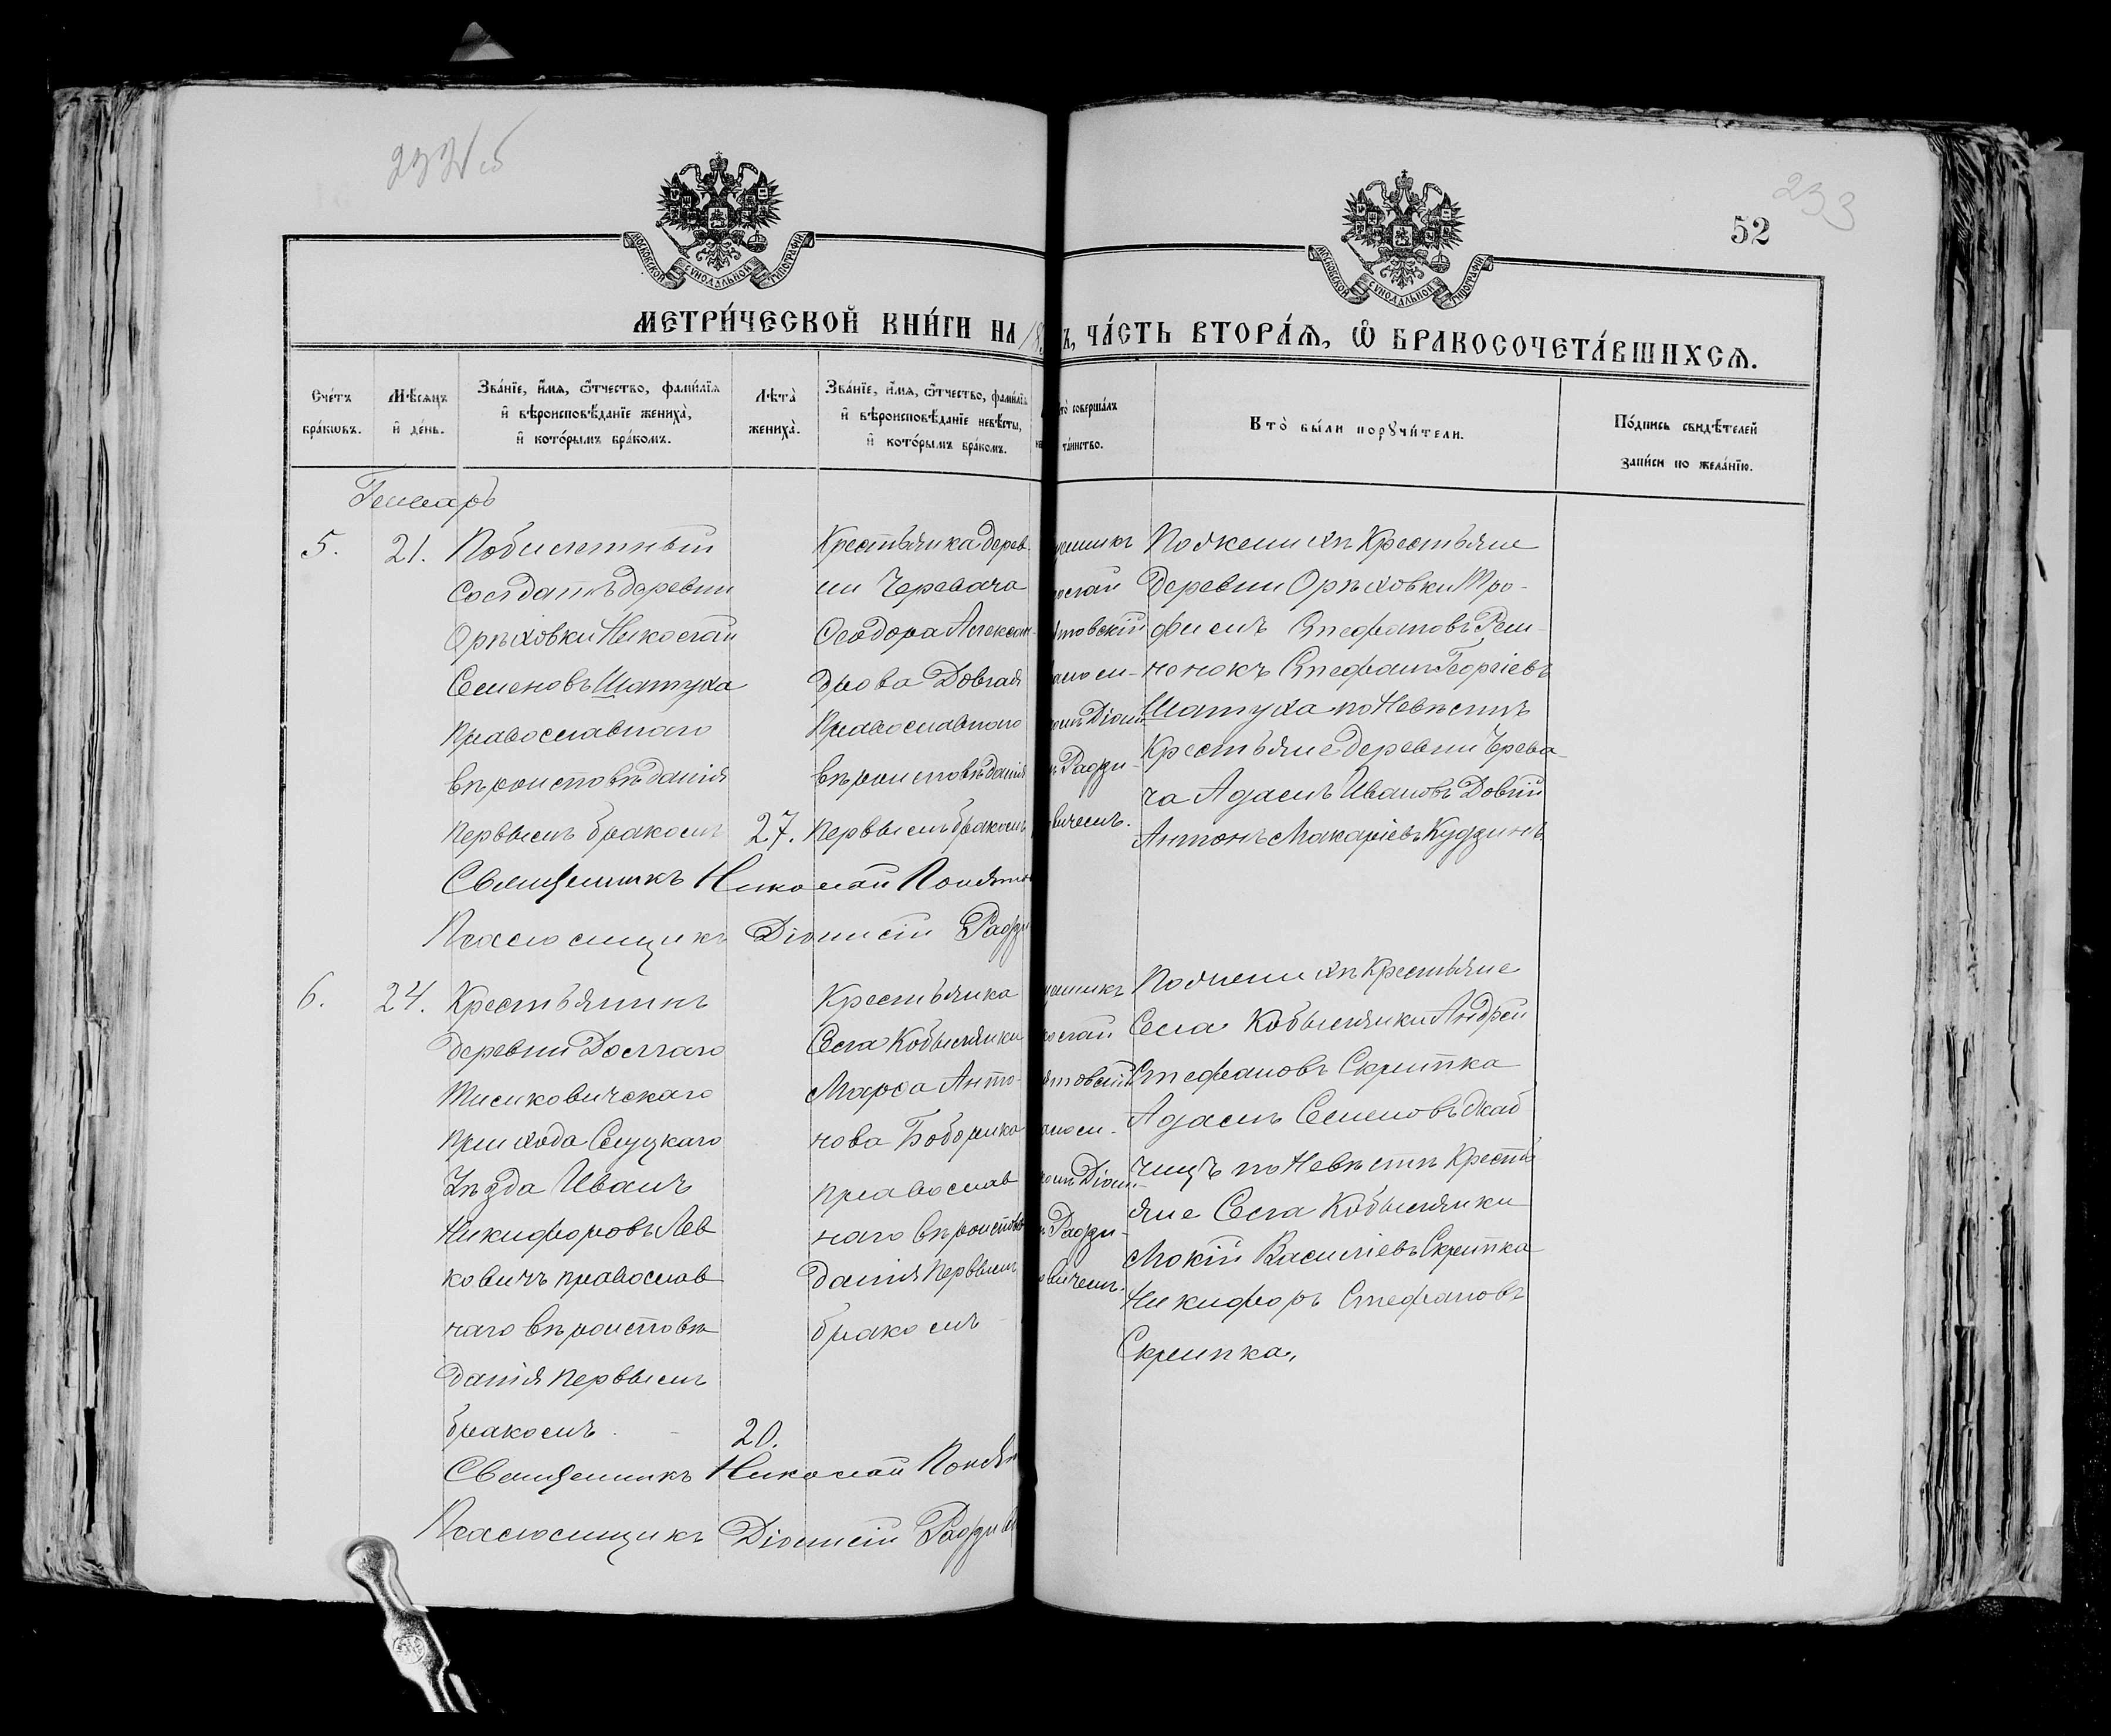 232 об
233
52
МОСКОВСКОЙ СУНОДАЛЬНОЙ ТИПОГРАФІИ
МОСКОВСКОЙ СУНОДАЛЬНОЙ ТИПОГРАФІИ
МЕТРИ́ЧЕСКОЙ КНИ́ГИ НА 18
ЧА́СТЬ ВТОРА́Ѧ, Ѿ БРАКОСОЧЕТА́ВШИХСѦ.
Сче́тъ
бра́кѡвъ.
Мѣ́сѧцъ
и҆ де́нь.
Зва́нїе, и҆́мѧ, ѻ҆́тчество, фами́лїѧ
и҆ вѣроисповѣ́данїе жениха̀,
и҆ кото́рымъ бра́комъ.
Лѣта̀
жениха̀.
Зва́нїе, и҆́мѧ, ѻ҆́тчество, фами́лїѧ
и҆ вѣроисповѣ́данїе невѣ́сты,
и҆ кото́рымъ бра́комъ.
то̀ соверша́лъ
та́инство.
Кто̀ бы́ли порꙋчи́тели.
По́дпись свидѣ́телей
за́писи по жела́нїю.
Генварь
5.
21.
Побилетный
Солдатъ деревни
Орѣховки Николай
Семеновъ Шатуха
Православнаго
вѣроисповѣданія
первымъ бракомъ
27.
Крестьянка дерев
ни Черевача
Ѳеодора Алексан-
дрова Довгая
Православнаго
вѣроисповѣданія
первымъ бракомъ
щенникъ
олай
ятовскій
аломъ-
омъ Діони
ъ Радзи-
вичемъ.
По женихѣ Крестьяне
деревни Орѣховки Тро-
фимъ Стефановъ Рем-
ненокъ Стефанъ Георгіевъ
Шатуха по Невѣстѣ
Крестьяне деревни Черева
ча Адамъ Ивановъ Довгій
Антонъ Макаріевъ Кудзинъ
Священникъ Николай Понято
Псаломщикъ Діонисій Радзи
6.
24.
Крестьянинъ
деревни Долгаго
Тимковичскаго
прихода Слуцкаго
Уѣзда Иванъ
Никифоровъ Лев
ковичъ православ
наго вѣроисповѣ
данія первымъ
бракомъ
20.
Крестьянка
Села Кобылянки
Марѳа Анто-
нова Боборика
православ
наго вѣроисповѣ
данія первымъ
бракомъ
щенникъ
колай
ятовскій
аломъ-
комъ Діони
ъ Радзи-
овичемъ.
По женихѣ Крестьяне
Села Кобылянки Андрей
Стефановъ Скрипка
Адамъ Семеновъ
по Невѣстѣ Кресть
яне Села Кобылянки
Мокій Василіевъ Скрипка
Никифоръ Стефановъ
Скрипка,
Священникъ Николай Понят
Псаломщикъ Діонисій Радзиво